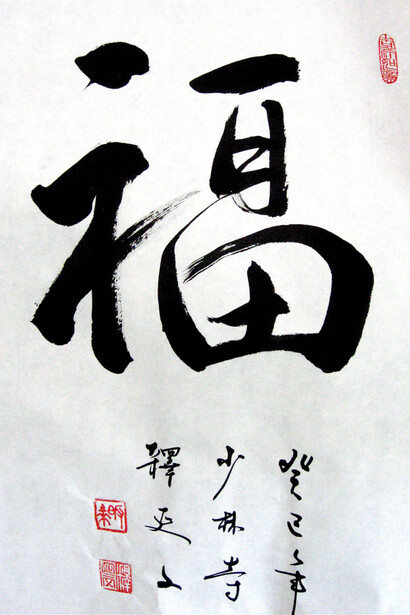 福
癸巳年
少林寺
釋延文